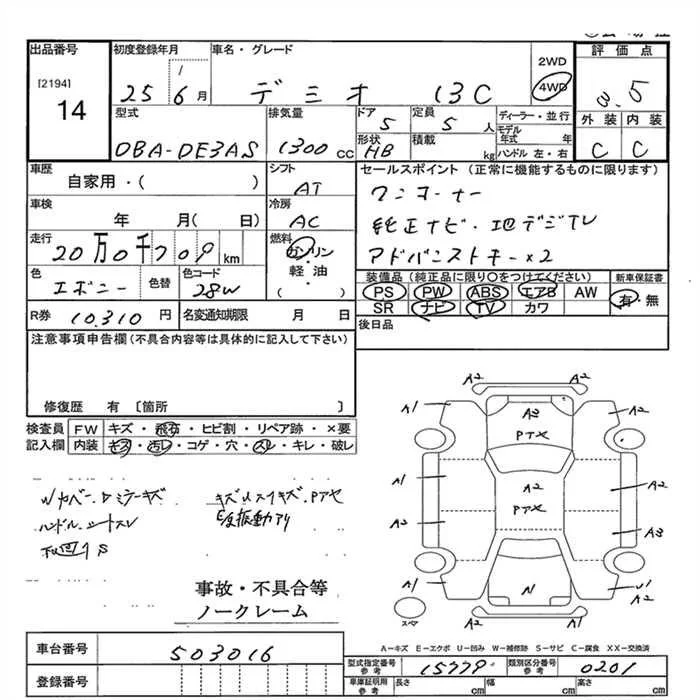 出品番号
[2194]
14
初度登録年月
25 1/6月
車名・グレード
デミオ 13C
2WD
4WD
評価点
3.5
外装 内装
C C
型式
DBA-DE3AS
排気量
1300cc
ドア
5
定員
5人
形状
HB
積載
kg
ディーラー・並行
モデル年式 年
ハンドル 左・右
車歴
自家用・( )
シフト
AT
セールスポイント(正常に機能するものに限ります)
ワンオーナー
純正ナビ・地デジTV
アドバンストキー×2
車検
年 月( 日)
冷房
AC
走行
20万0千709km
燃料
ガソリン
軽油
( )
色
エボニー
色替
色コード
28W
装備品(純正品に限り○をつけてください)
PS PW ABS エアB AW
SR ナビ TV カワ
新車保証書
有・無
R券
10,310円
名変通知期限 月 日
後日品
注意事項申告欄(不具合内容等は具体的に記入して下さい)
修復歴 有 〔箇所 〕
検査員記入欄
FW キズ・飛石・ヒビ割・リペア跡・×要
内装 キズ・汚レ・コゲ・穴・スレ・キレ・破レ
ハンドル・シートスレ
事故・不具合等
ノークレーム
A2 A2
A1 A2 A2
PTX
A1 A2 A2
PTX
A2 A3
N
A1 U1
A2 A1
スペア
A-キズ E-エクボ U-凹み W-補修跡 S-サビ C-腐食 XX-交換済
車台番号
503016
登録番号
型式指定番号 参考
15779
類別区分番号 参考
0201
車庫証明用 参考
長さ cm 幅 cm 高さ cm